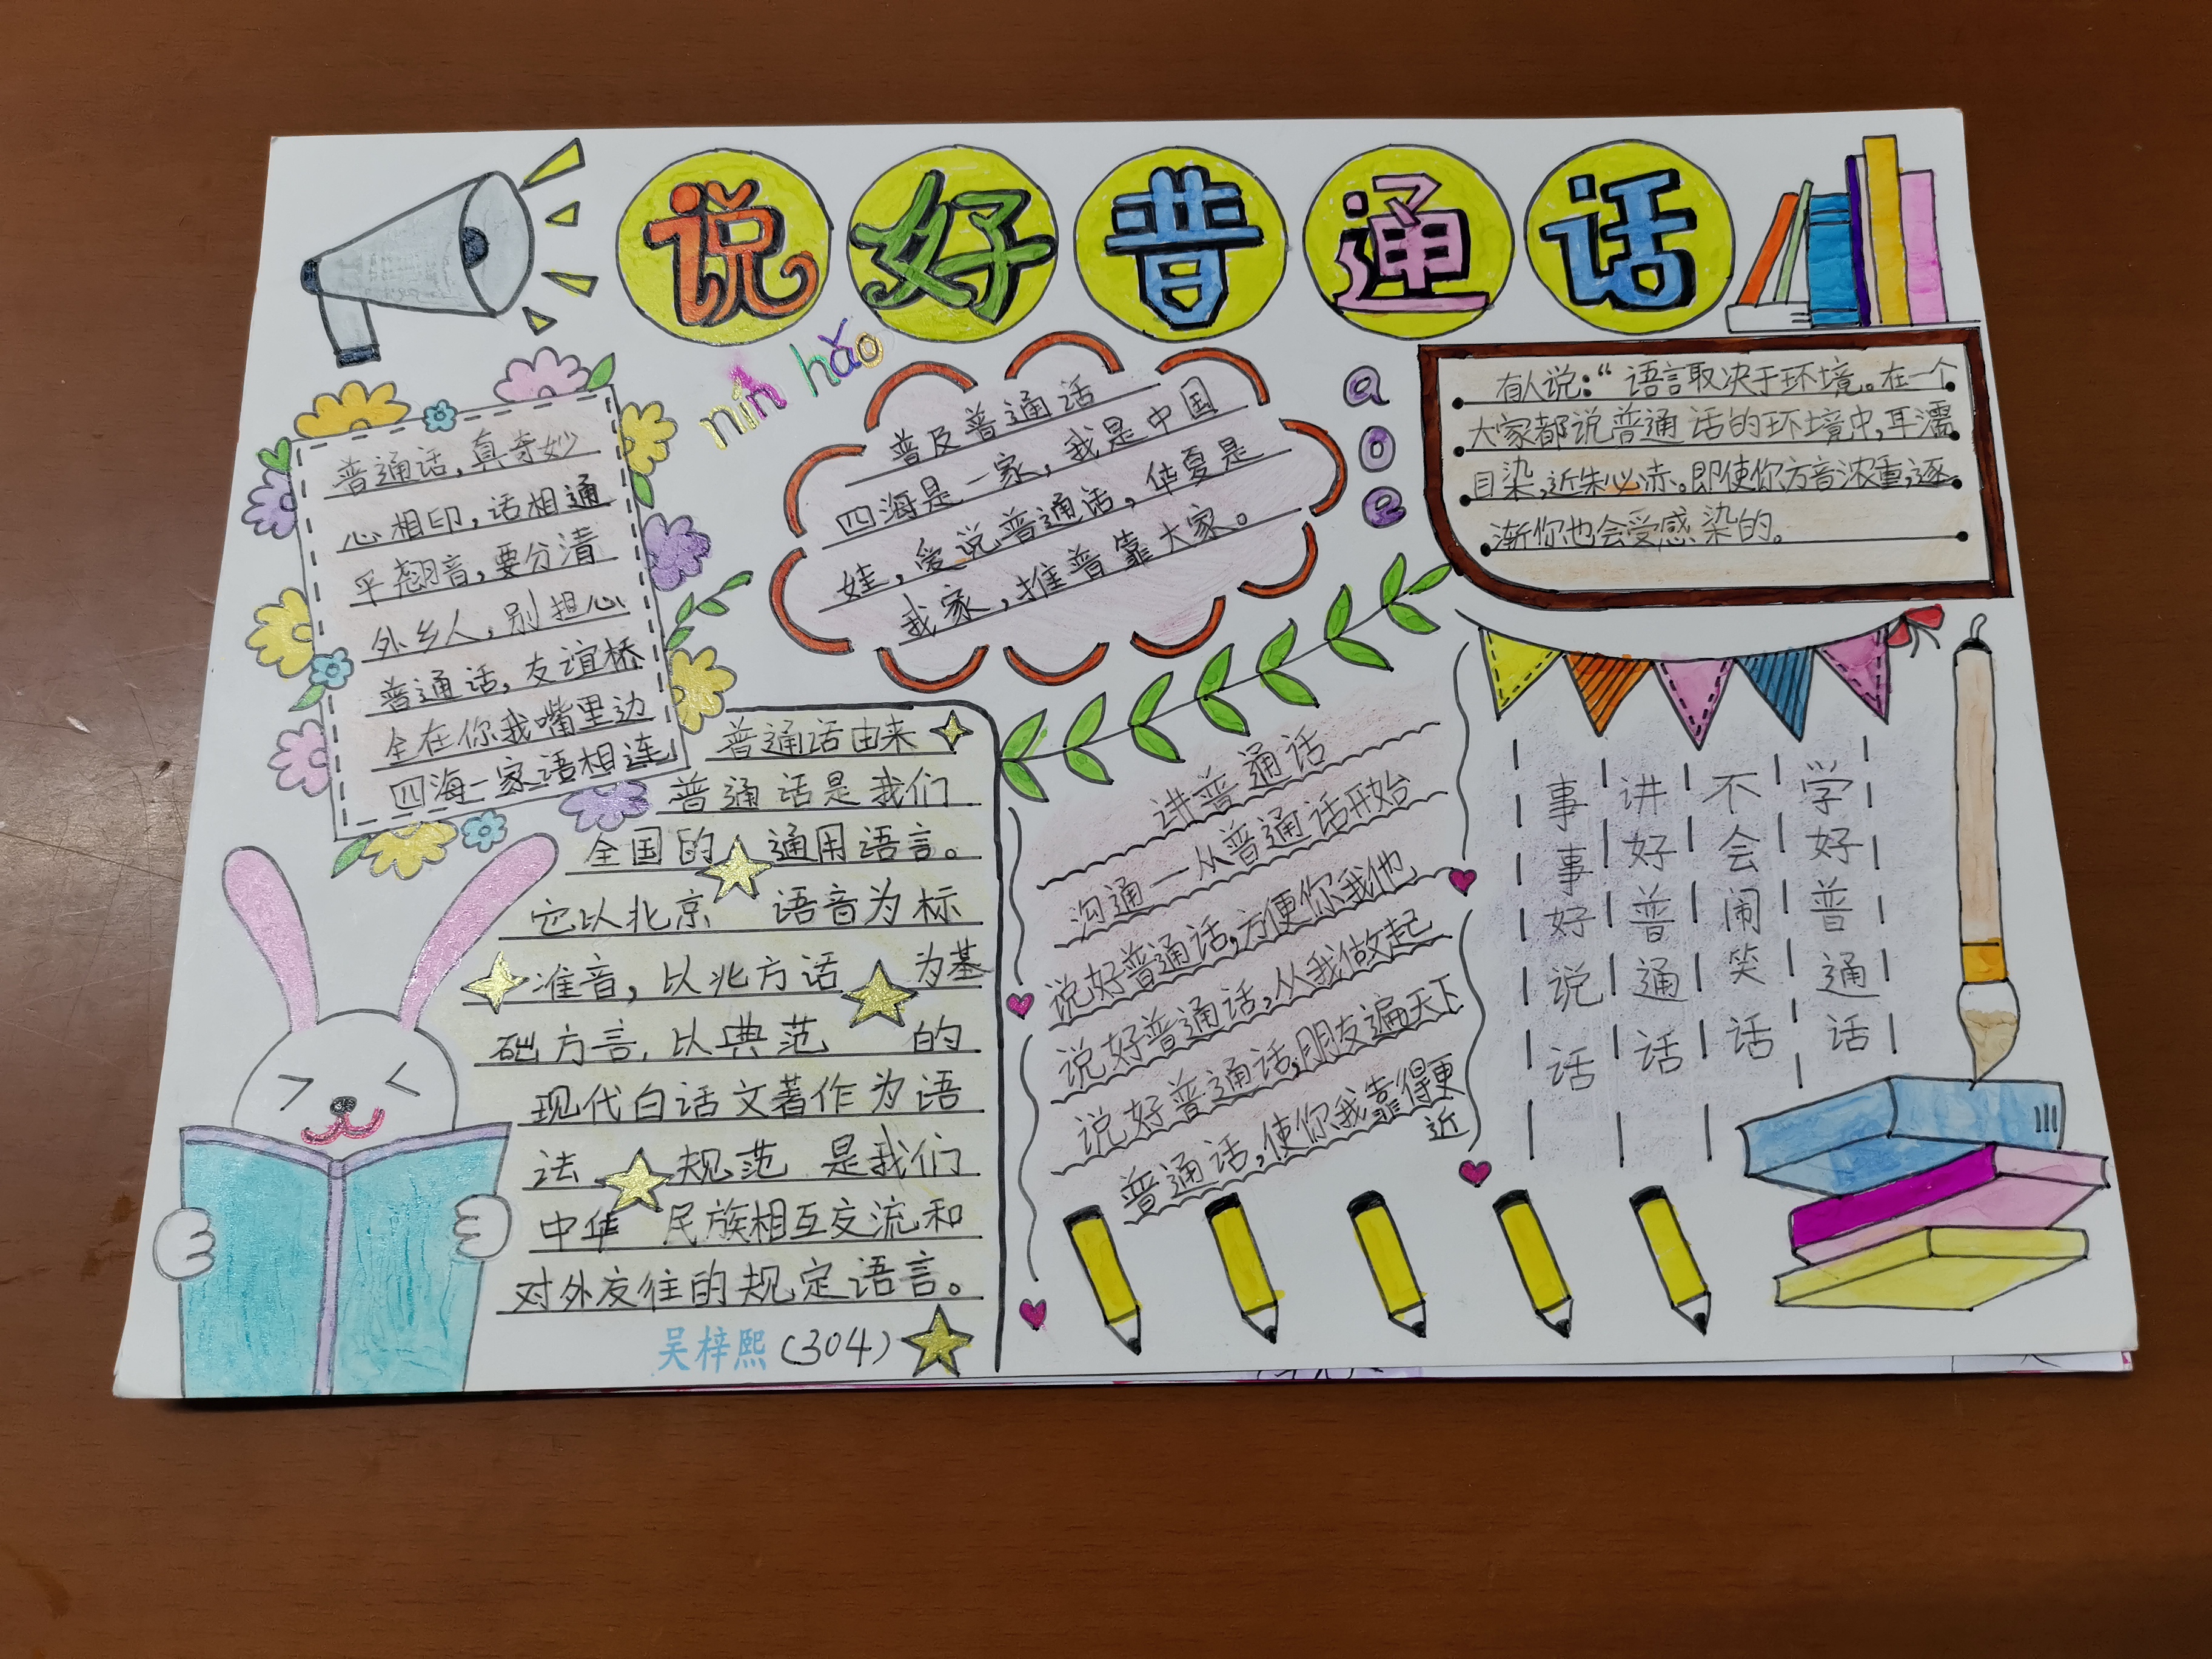 说好普通话
nín hǎo
普通话，真奇妙
心相印，话相通
平翘音，要分清
外乡人，别担心
普通话，友谊桥
全在你我嘴里边
四海一家语相连
普及普通话
四海是一家，我是中国
娃，爱说普通话，华夏是
我家，推普靠大家。
a
o
e
有人说：“语言取决于环境。在一个
大家都说普通话的环境中，耳濡
目染，近朱必赤。即使你方音浓重，逐
渐你也会受感染的。
普通话由来
普通话是我们
全国的通用语言。
它以北京语音为标
准音，以北方话为基
础方言，以典范的
现代白话文著作为语
法规范是我们
中华民族相互交流和
对外友往的规定语言。
吴梓熙（304）
讲普通话
沟通—从普通话开始
说好普通话，方便你我他
说好普通话，从我做起
说好普通话，朋友遍天下
普通话，使你我靠得更
近
学好普通话
不会闹笑话
讲好普通话
事事好说话